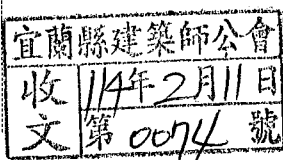 宜蘭縣建築師公會
收文
114年2月11日
第0074號